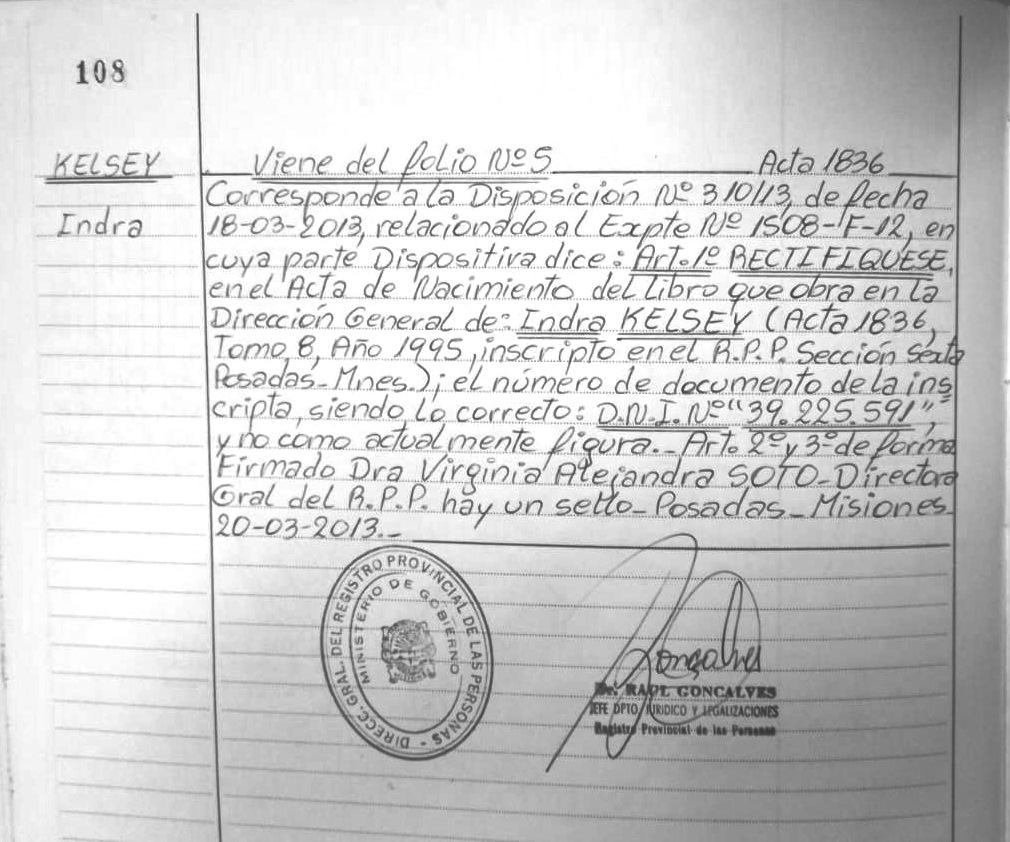 108
KELSEY
Indra
Viene del folio Nº 5 Acta 1836
Corresponde a la Disposición Nº 310/13, de fecha
18-03-2013, relacionado al Expte Nº 1508-F-12, en
cuya parte Dispositiva dice: Art. 1º RECTIFIQUESE,
en el Acta de Nacimiento del Libro que obra en la
Dirección General de: Indra KELSEY (Acta 1836,
Tomo 8, Año 1995, inscripto en el R.P.P. Sección Sexta
Posadas-Mnes.); el número de documento de la ins
cripta, siendo lo correcto: D.N.I. Nº "39.225.591",
y no como actualmente figura.- Art. 2º y 3º de forma
Firmado Dra Virginia Alejandra SOTO-Directora
Gral del R.P.P. hay un sello-Posadas-Misiones
20-03-2013.-
DIRECC. GRAL. DEL REGISTRO PROVINCIAL DE LAS PERSONAS -
MINISTERIO DE GOBIERNO
Gonçalves
Dr. RAUL GONCALVES
JEFE DPTO. JURIDICO Y LEGALIZACIONES
Registro Provincial de las Personas